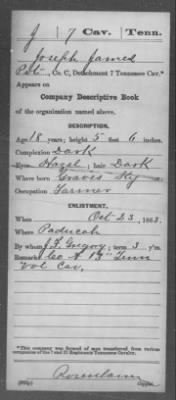 J 7 Cav. Tenn.
Joseph James
Pvt., Co. C, Detachment 7 Tennessee Cav.*
Appears on
Company Descriptive Book
of the organization named above.
DESCRIPTION.
Age 18 years; height 5 feet 6 inches.
Complexion Dark
Eyes Hazel; hair Dark
Where born Graves Ky
Occupation Farmer
ENLISTMENT.
When Oct 23, 1863.
Where Paducah
By whom J. T. Gregory; term 3 y'rs.
Remarks: Co A 13" Tenn
Vol Cav.
*This company was formed of men transferred from various
companies of the 7 and
Tennessee Cavalry.
Rosenbaum
Copyist.